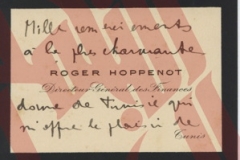 Mille remerciements
à la plus charmante
ROGER HOPPENOT
Directeur Général des Finances
dame de Tunisie qui
m'offre le plaisir de
Tunis